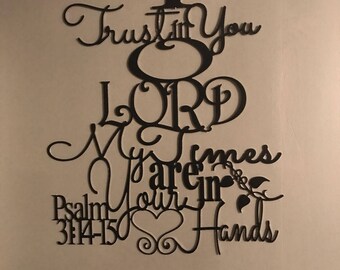 I
Trust in You
O
LORD
My Times
are in
Your
Hands
Psalm
31:14-15